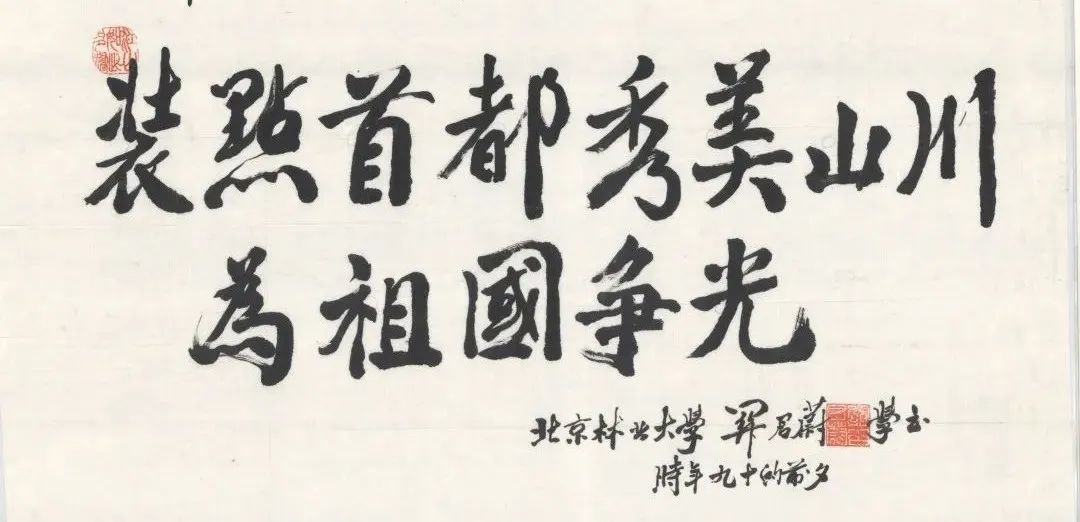 装點首都秀美山川
為祖國争光
北京林业大學 関君蔚 學书
時年九十的前夕